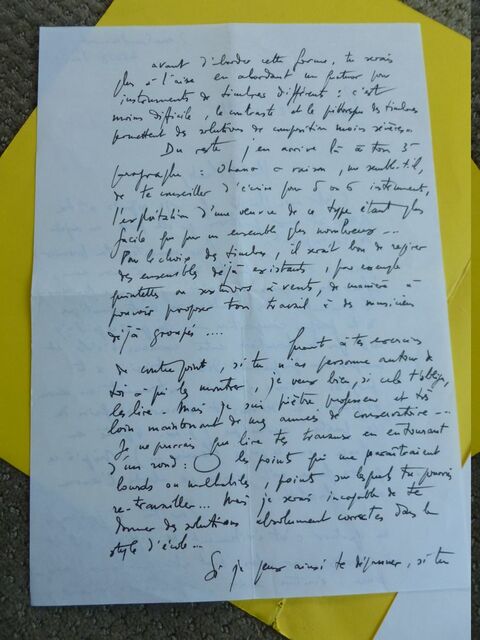 avant d'aborder cette forme, tu serais
plus à l'aise en abordant un quatuor pour
instruments de timbres différents : c'est
moins difficile, le contraste et le pittoresque des timbres
permettent des solutions de composition moins sévères.
Du reste, j'en arrive là à ton 3e
paragraphe : Ohana a raison, me semble-t-il,
de te conseiller d'écrire pour 5 ou 6 instruments,
l'exploitation d'une oeuvre de ce type étant plus
facile que pour un ensemble plus nombreux...
Pour le choix des timbres, il serait bon de
des ensembles déjà existants, par exemple
quintettes ou à vent, de manière à
pouvoir proposer ton travail à des musiciens
déjà groupés....
Quant à tes exercices
de contrepoint, si tu n'as personne autour de
toi à qui les montrer, je veux bien, si cela t'oblige,
les lire. Mais je suis piètre professeur et très
loin maintenant de mes années de conservatoire...
Je ne pourrais que lire tes travaux en entourant
d'un rond : les points qui me paraîtraient
lourds ou malhabiles, points sur lesquels tu pourrais
re-travailler... Mais je serais incapable de te
donner des solutions absolument correctes dans le
style d'école...
Si je peux ainsi te dépanner, si tu